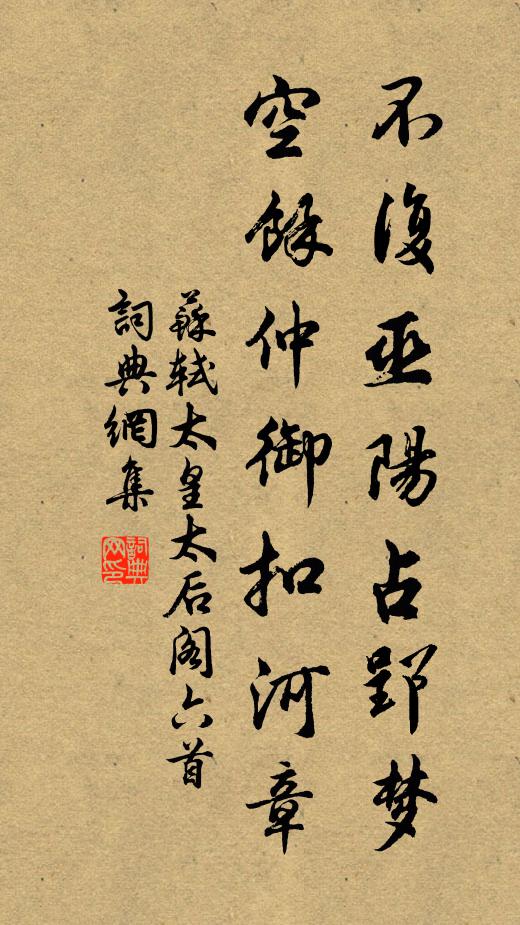 不復巫陽占郢梦
空餘仲御扣河章
蘇軾太皇太后阁六首
詞典網集
詞典網印